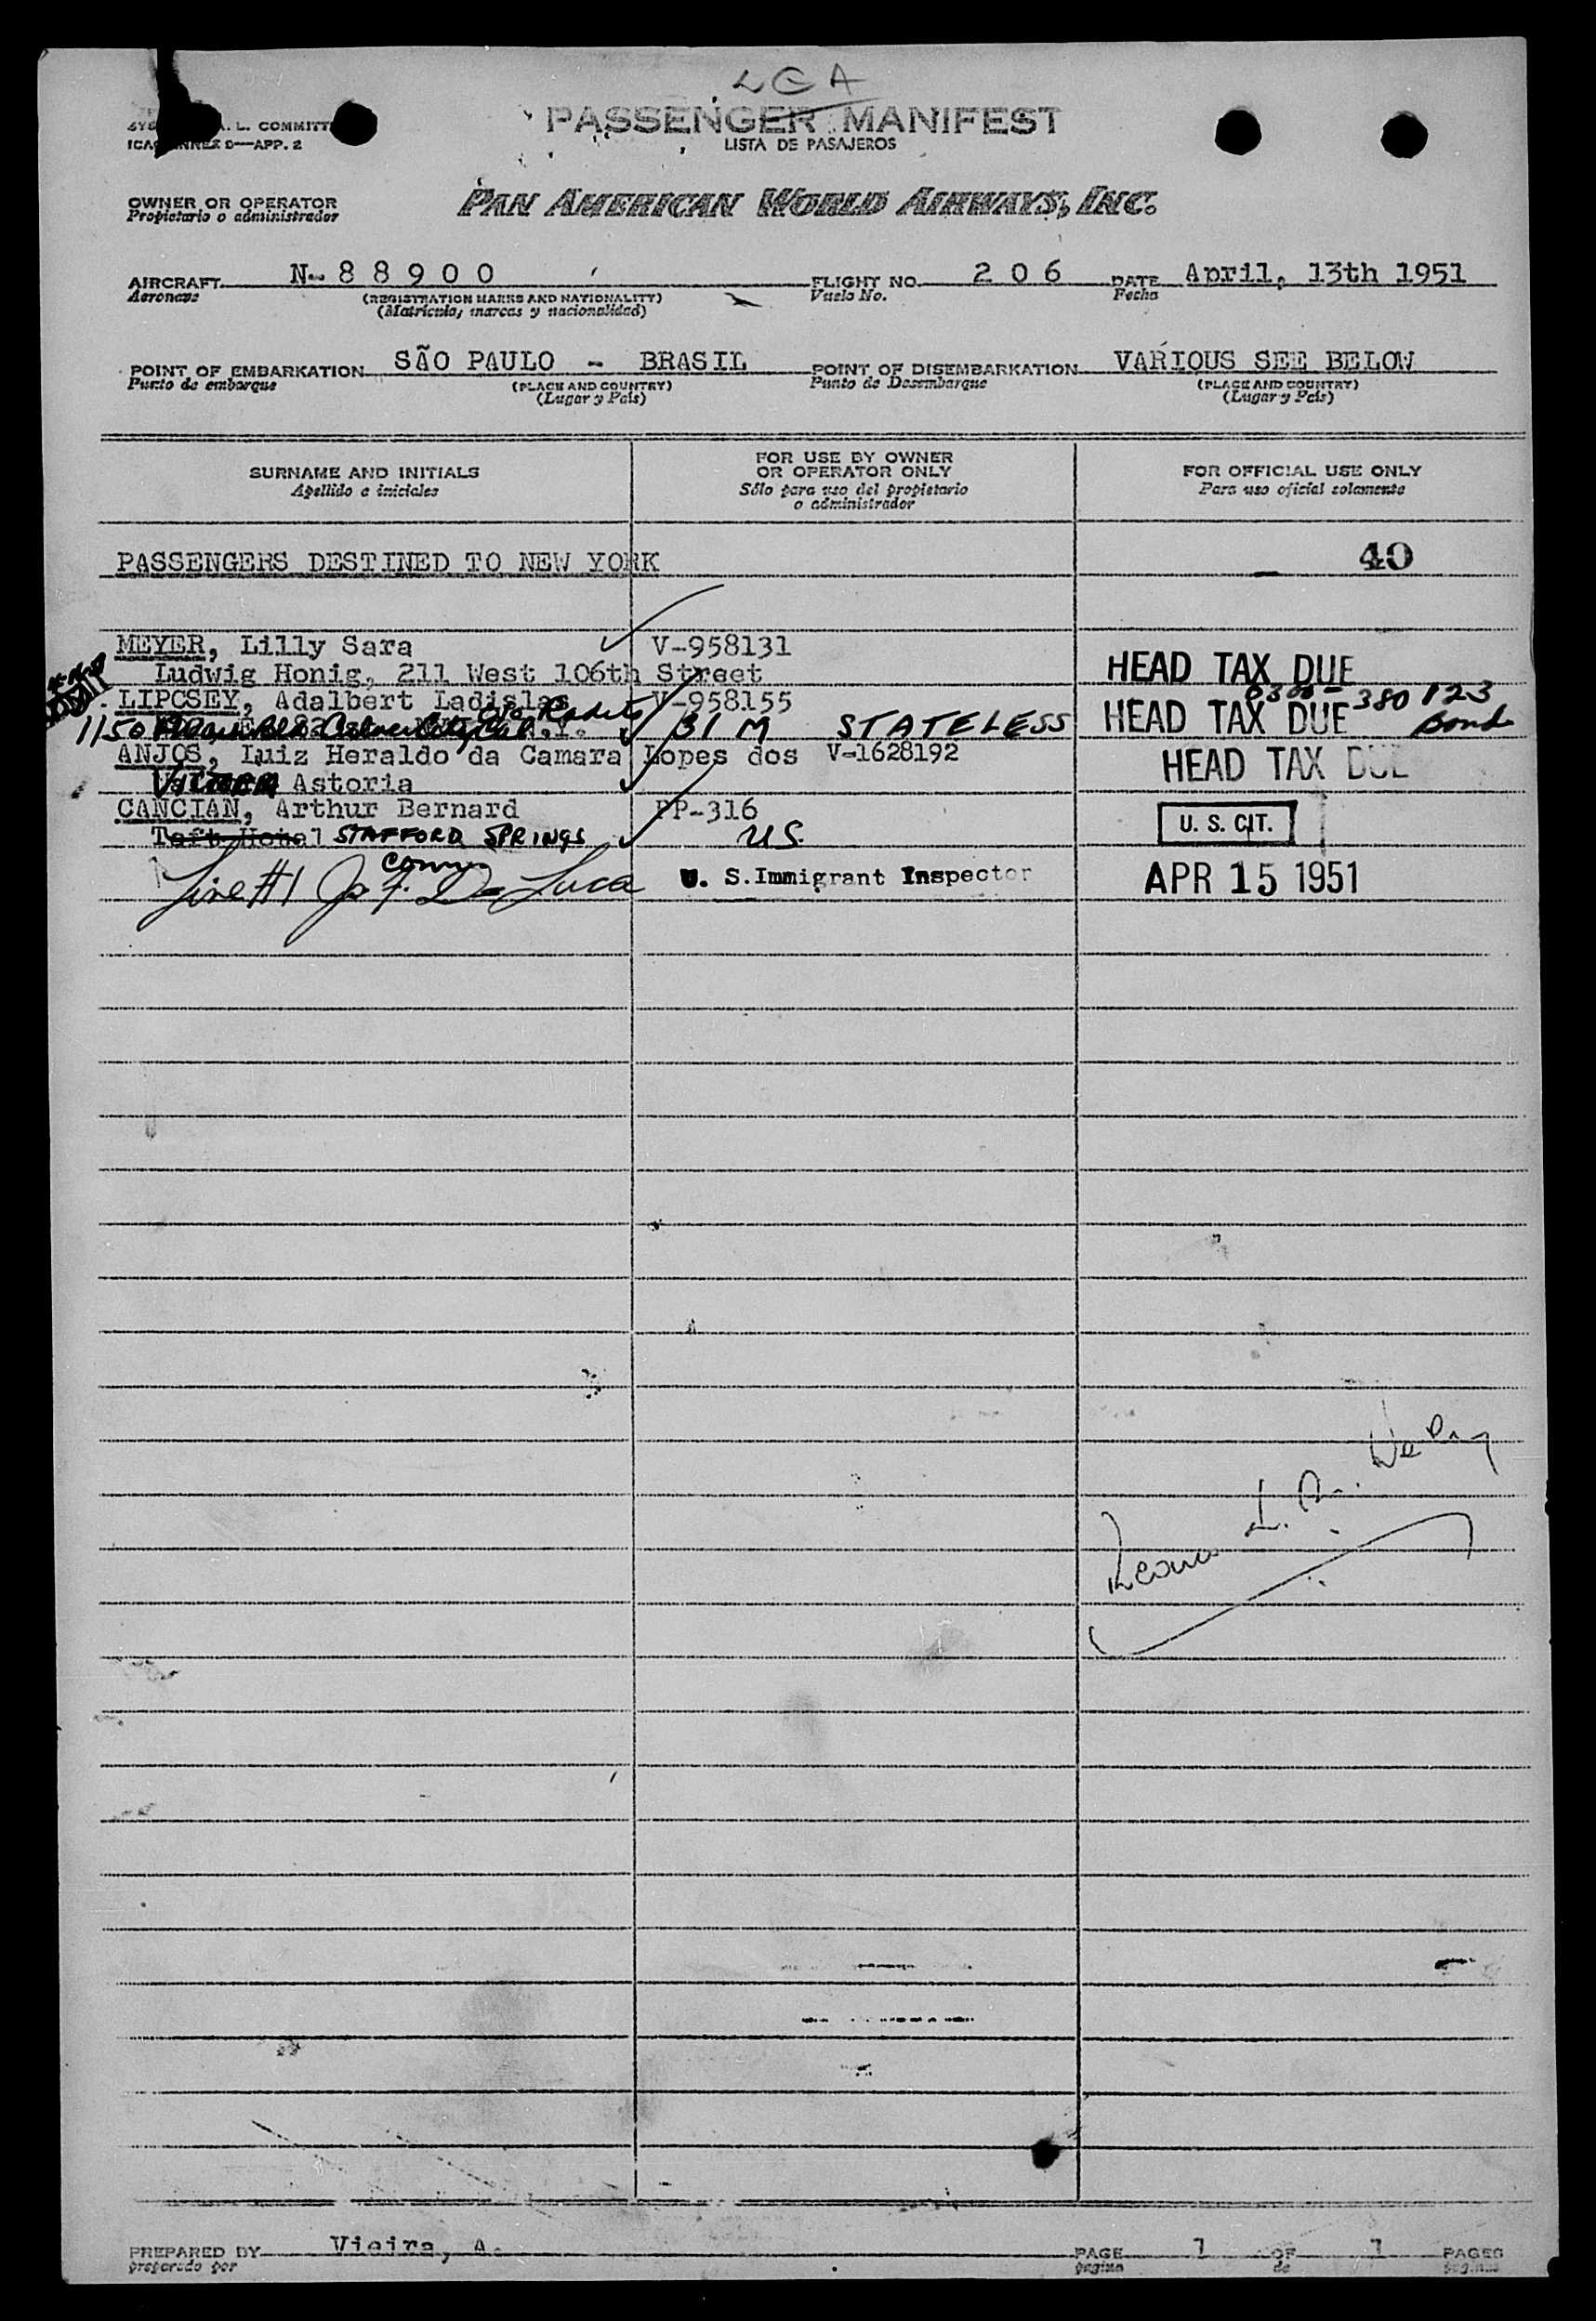 LGA
PASSENGER MANIFEST
LISTA DE PASAJEROS
A. L. COMMITT
ICAO ANNEX 9—APP. 2
OWNER OR OPERATOR
Propietario o administrador
PAN AMERICAN WORLD AIRWAYS, INC.
AIRCRAFT N-88900 FLIGHT NO. 206 DATE April, 13th 1951
Aeronave (REGISTRATION MARKS AND NATIONALITY) Vuelo No. Fecha
(Matrícula, marcas y nacionalidad)
POINT OF EMBARKATION SÃO PAULO - BRASIL POINT OF DISEMBARKATION VARIOUS SEE BELOW
Punto de embarque (PLACE AND COUNTRY) Punto de Desembarque (PLACE AND COUNTRY)
(Lugar y País) (Lugar y País)
SURNAME AND INITIALS FOR USE BY OWNER OR OPERATOR ONLY FOR OFFICIAL USE ONLY
Apellido e iniciales Sólo para uso del propietario o administrador Para uso oficial solamente
PASSENGERS DESTINED TO NEW YORK 40
MEYER, Lilly Sara V-958131
Ludwig Honig, 211 West 106th Street HEAD TAX DUE
LIPCSEY, Adalbert Ladislas V-958155 380123
1150 Culver City Cal 31 M STATELESS HEAD TAX DUE Bond
ANJOS, Luiz Heraldo da Camara Lopes dos V-1628192 HEAD TAX DUE
Astoria
CANCIAN, Arthur Bernard PP-316 U. S. CIT.
Taft Hotel STAFFORD SPRINGS U.S.
Conn
Line #1 Jos F. De Luca U. S. Immigrant Inspector APR 15 1951
PREPARED BY Vieira, A. PAGE 1 OF 1 PAGES
preparado por página de páginas